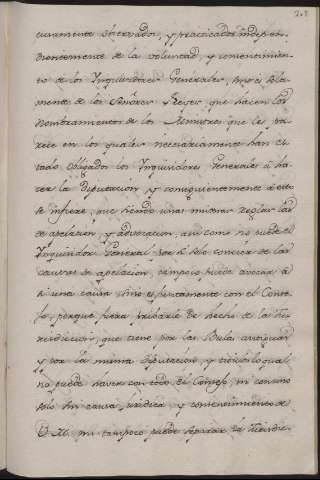 curamente observados, y practicados indepen-
dientemente de la voluntad, y consentimien-
to de los Inquisidores Generales, sino es sola-
mente de los Señores Reyes, que hacen los
nombramientos de los Ministros que les pa-
rece en los quales necesariamente han es-
tado obligados los Inquisidores Generales à ha-
cer la Diputacion, y consiguientemente à esto
se infiere, que siendo unas mismas reglas las
de apelacion, y advocacion, asi como no puede el
Inquisidor General por si solo conocer de las
causas de apelacion, tampoco puede avocar à
si una causa sino es juntamente con el Conse-
jo, porque fuera privarle de hecho de la Ju-
risdiccion, que tiene por las Bulas antiguas
y por la misma Diputacion, y titulo lo qual
no puede hacer con todo el Consejo, ni con uno
solo sin causa juridica y consentimiento de
V. M. ni tampoco puede separar la Jurisdic-